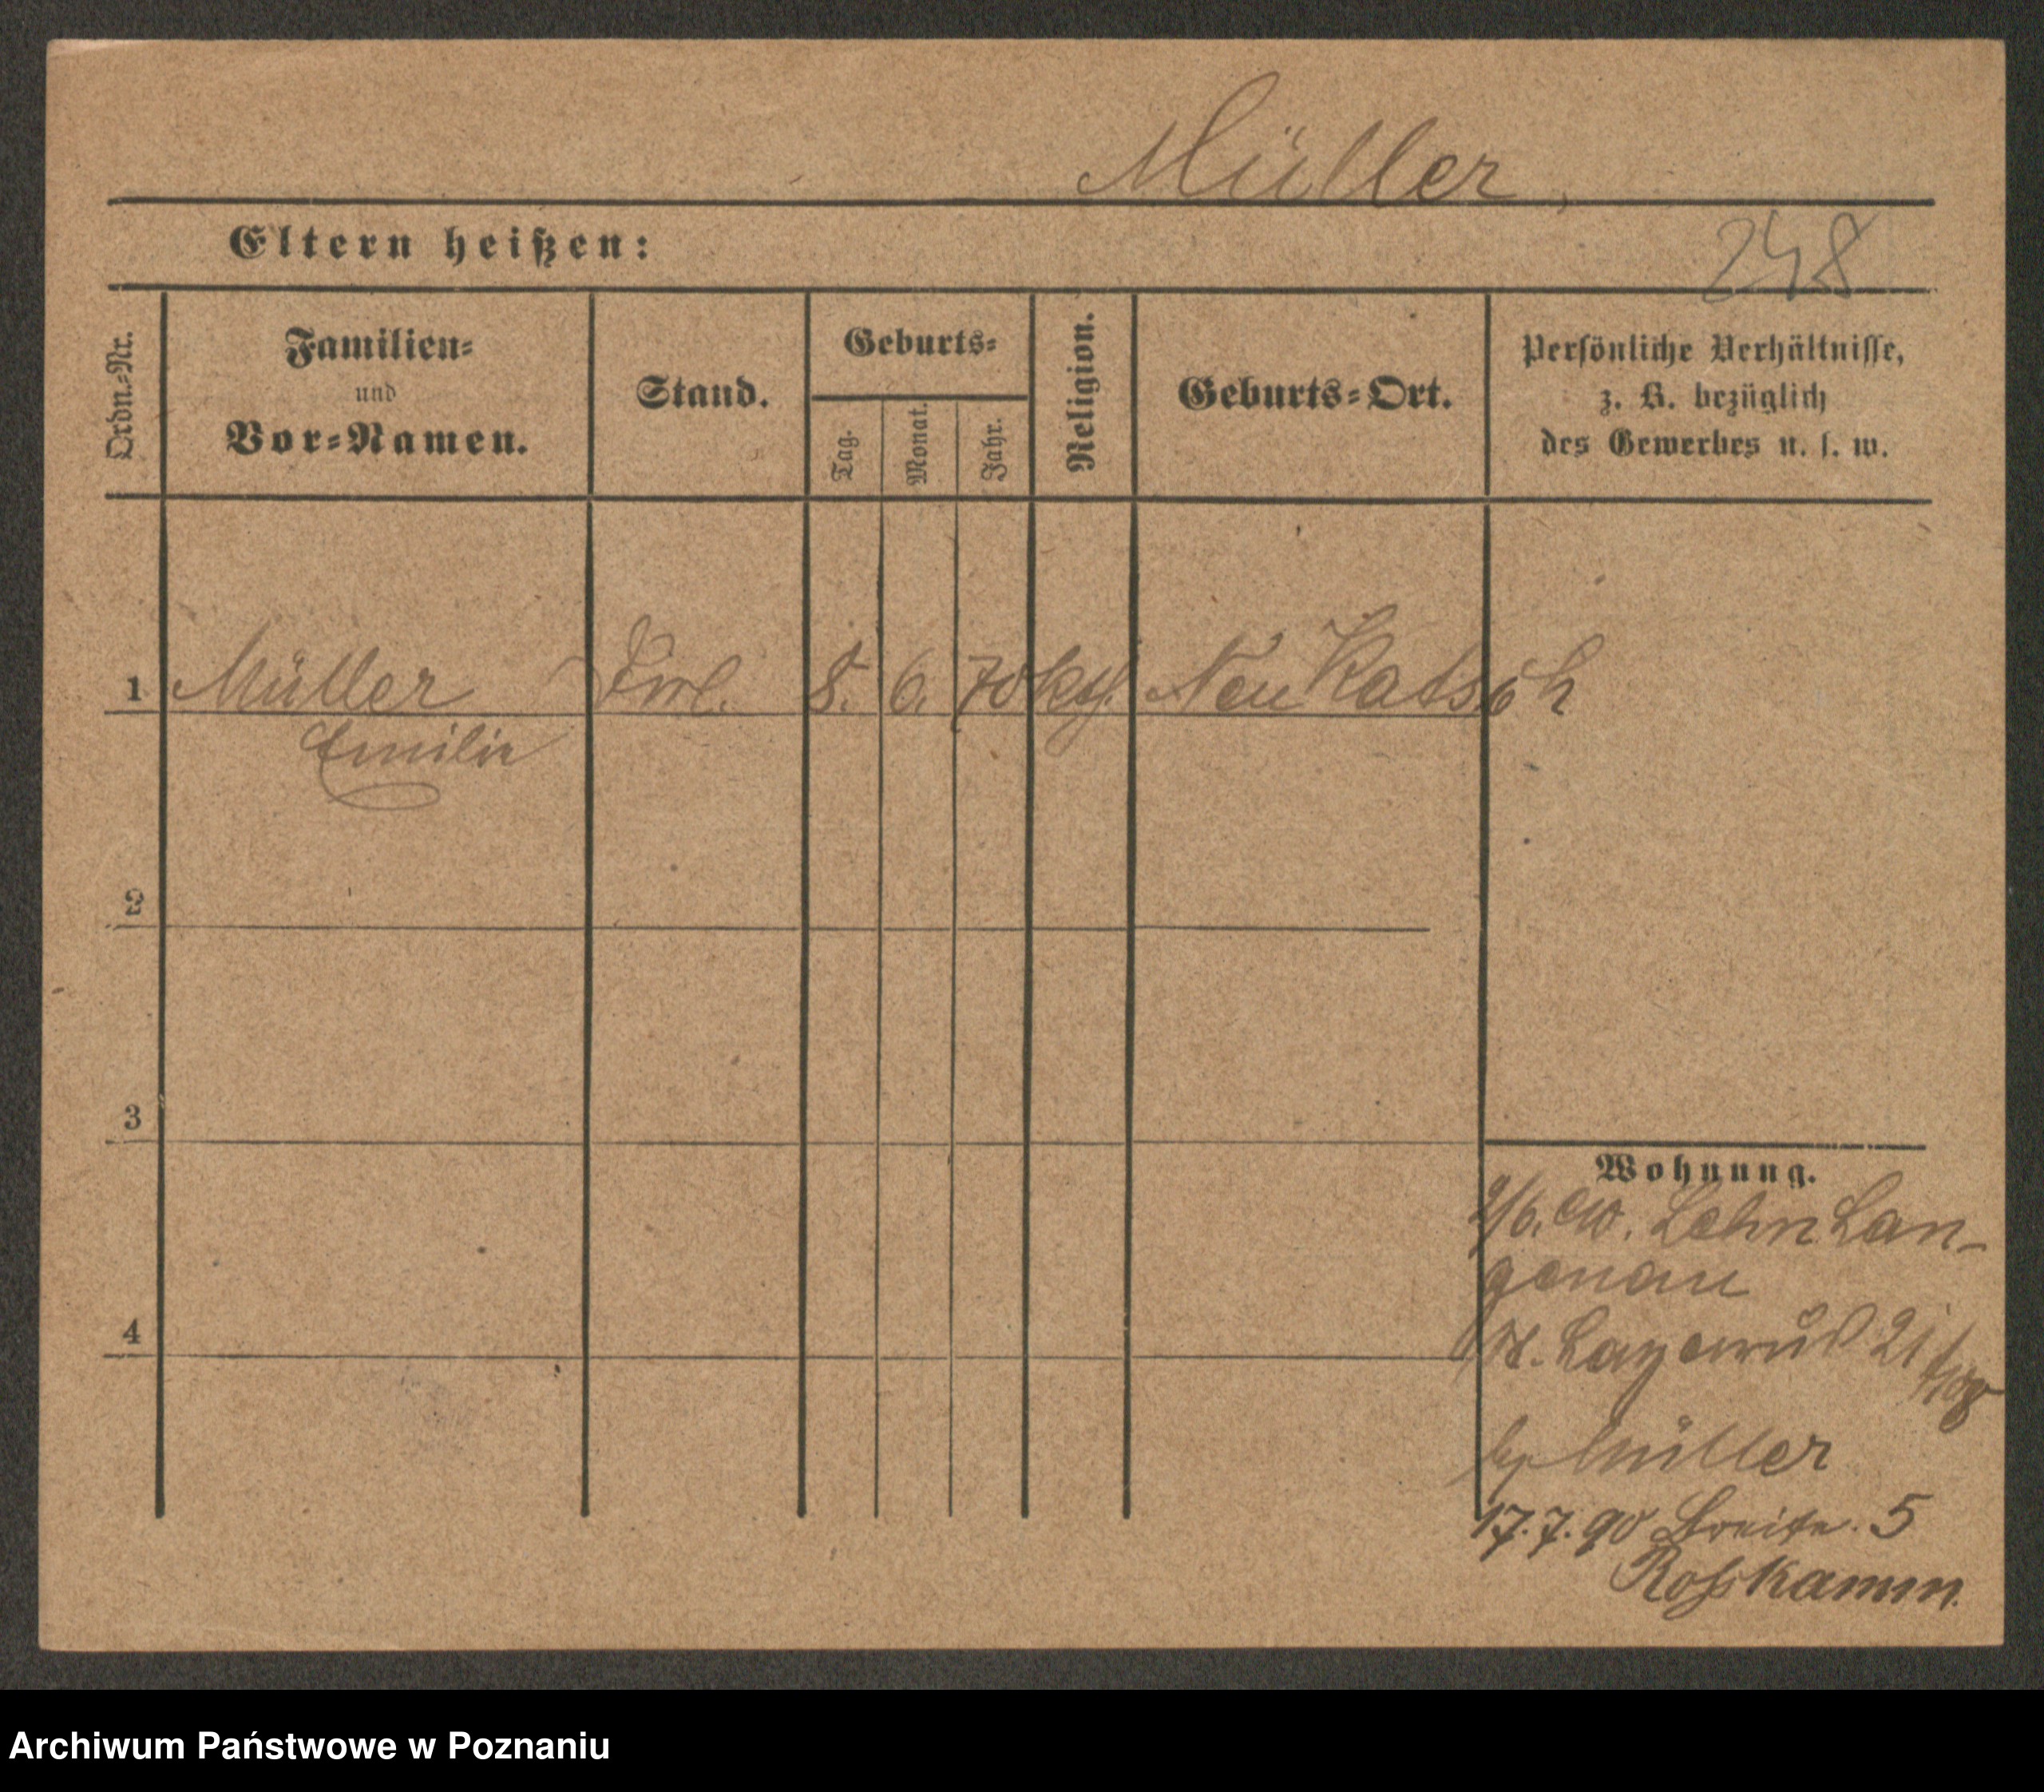 Müller,
Eltern heißen:
248
Ordn.-Nr.
Familien-
und
Vor-Namen.
Stand.
Geburts-
Tag.
Monat.
Jahr.
Religion.
Geburts-Ort.
Persönliche Verhältnisse,
z. B. bezüglich
des Gewerbes u. s. w.
1 Müller Frl. 8. 6. 70 Neu Katsch
Emilie
2
3
4
Wohnung.
Lehn Lan-
genau
21
Müller
17.7.90 Breite. 5
Rosskamm.
Archiwum Państwowe w Poznaniu